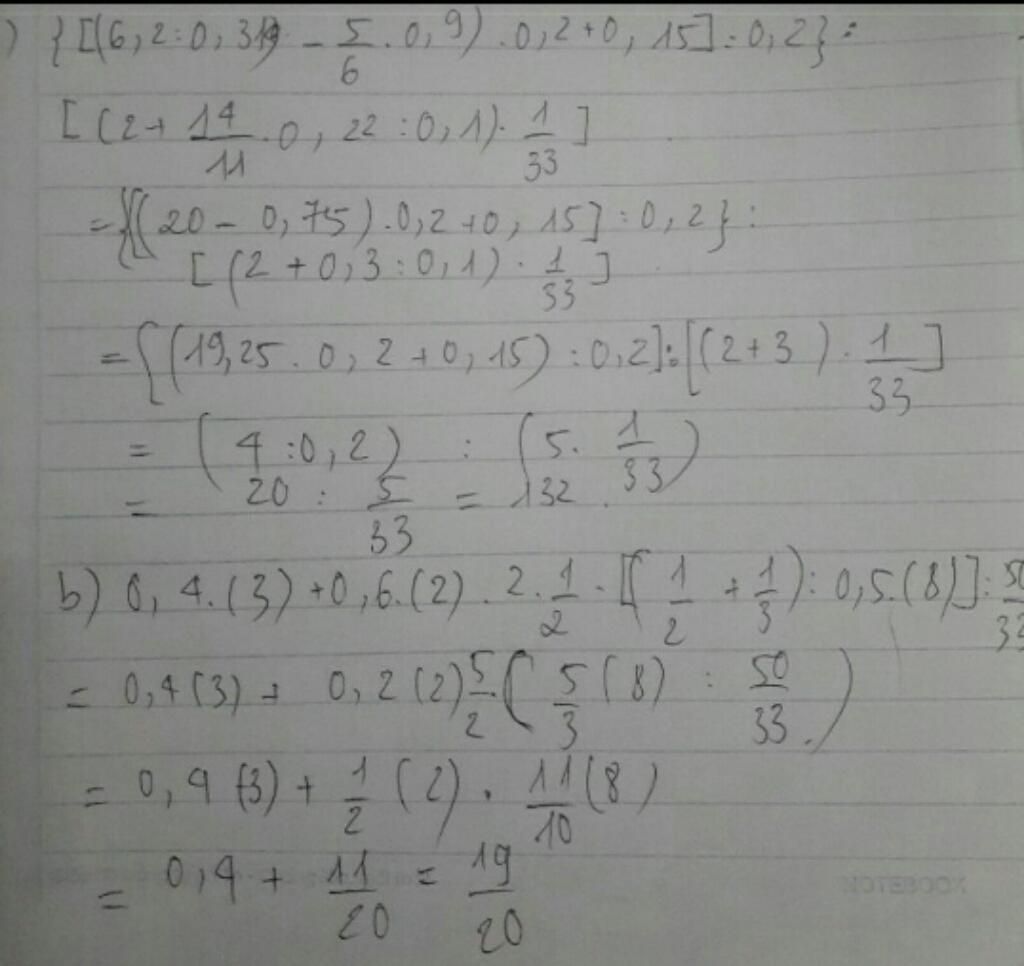 ) {[(6,2:0,31 - 5/6 . 0,9) . 0,2+0,15] : 0,2} :
[(2+ 14/11 . 0,22 : 0,1) . 1/33]
= {[(20 - 0,75) . 0,2+0,15] : 0,2} :
[(2 + 0,3 : 0,1) . 1/33]
= {(19,25 . 0,2+0,15) : 0,2] : [(2+3) . 1/33]
= (4 : 0,2) : (5 . 1/33)
= 20 : 5/33 = 132 .
b) 0,4.(3) + 0,6.(2) . 2 . 1/2 - [(1/2 + 1/3) : 0,5.(8)] : 50/33
= 0,4(3) + 0,2(2) 5/2 . (5/3 (8) : 50/33 .)
= 0,4(3) + 1/2 (2) . 11/10 (8)
= 0,4 + 11/20 = 19/20
NOTEBOOK